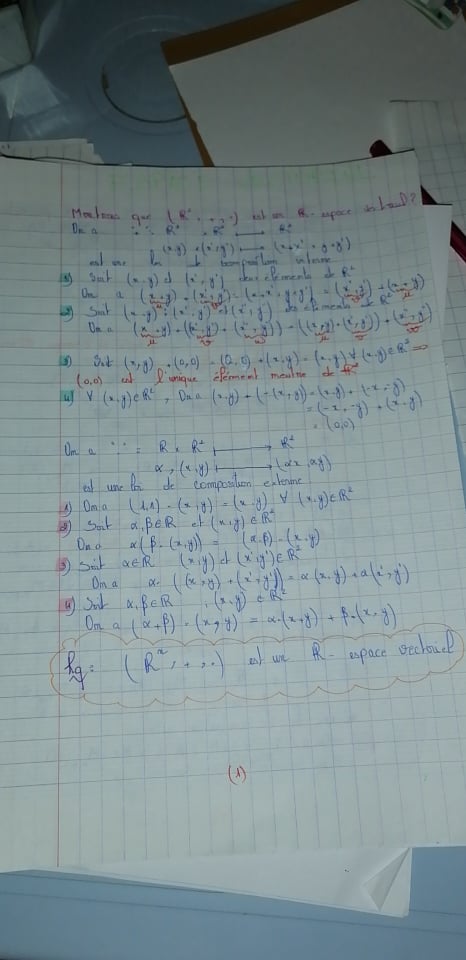 Montrons que (R², +, .) est un R-espace vectoriel?
On a "+": R² × R² ⟼ R²
(x,y) + (x',y') ⟼ (x+x', y+y')
est une loi de composition interne
1) Soit (x,y) et (x',y') deux éléments de R²
On a (x,y) + (x',y') = (x+x', y+y') = (x',y') + (x,y)
2) Soit (x,y); (x',y') des éléments de R²
On a (x,y) + ((x',y') + (x'',y'')) = ((x,y) + (x',y')) + (x'',y'')
3) Soit (x,y) + (0,0) = (0,0) + (x,y) = (x,y) ∀ (x,y) ∈ R² ⇒
(0,0) est l'unique élément neutre de R²
4) ∀ (x,y) ∈ R², On a (x,y) + (-(x,y)) = (x,y) + (-x,-y)
= (-x,-y) + (x,y)
= (0,0)
On a "." = R × R² ⟼ R²
α, (x,y) ⟼ (αx, αy)
est une loi de composition externe
1) On a (1,1) . (x,y) = (x,y) ∀ (x,y) ∈ R²
2) Soit α,β ∈ R et (x,y) ∈ R²
On a α(β.(x,y)) = (α.β).(x,y)
3) Soit α ∈ R (x,y) et (x',y') ∈ R²
On a α.((x,y) + (x',y')) = α(x,y) + α(x',y')
4) Soit α,β ∈ R, (x,y) ∈ R²
On a (α+β).(x,y) = α.(x,y) + β.(x,y)
Rq: (Rⁿ, +, .) est un R-espace vectoriel
(1)